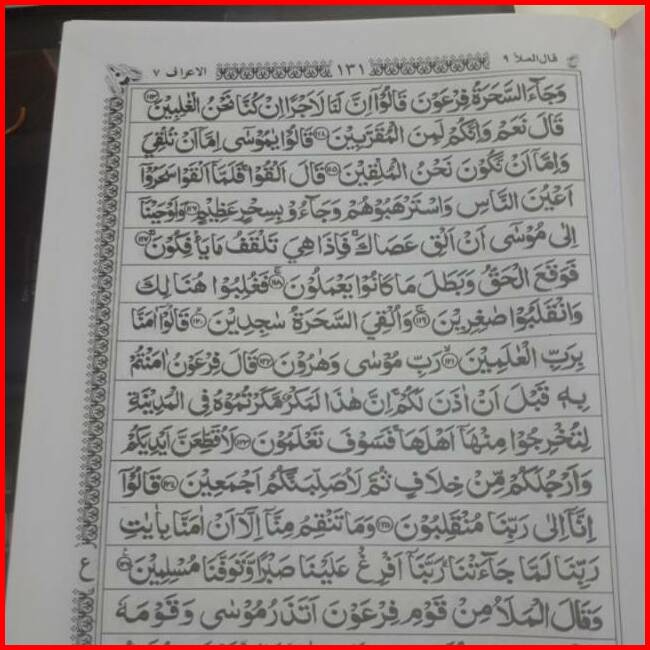 قال الملأ ٩
١٣١
الاعراف ٧
وَجَآءَ السَّحَرَةُ فِرْعَوْنَ قَالُوْٓا اِنَّ لَنَا لَاَجْرًا اِنْ كُنَّا نَحْنُ الْغٰلِبِيْنَ ﴿۱۱۳﴾
قَالَ نَعَمْ وَاِنَّكُمْ لَمِنَ الْمُقَرَّبِيْنَ ﴿۱۱۴﴾ قَالُوْا يٰمُوْسٰٓى اِمَّآ اَنْ تُلْقِيَ
وَاِمَّآ اَنْ نَّكُوْنَ نَحْنُ الْمُلْقِيْنَ ﴿۱۱۵﴾ قَالَ اَلْقُوْا ۚ فَلَمَّآ اَلْقَوْا سَحَرُوْٓا
اَعْيُنَ النَّاسِ وَاسْتَرْهَبُوْهُمْ وَجَآءُوْ بِسِحْرٍ عَظِيْمٍ ﴿۱۱۶﴾ وَاَوْحَيْنَآ
اِلٰى مُوْسٰٓى اَنْ اَلْقِ عَصَاكَ ۚ فَاِذَا هِيَ تَلْقَفُ مَا يَاْفِكُوْنَ ﴿۱۱۷﴾
فَوَقَعَ الْحَقُّ وَبَطَلَ مَا كَانُوْا يَعْمَلُوْنَ ﴿۱۱۸﴾ فَغُلِبُوْا هُنَالِكَ
وَانْقَلَبُوْا صٰغِرِيْنَ ﴿۱۱۹﴾ وَاُلْقِيَ السَّحَرَةُ سٰجِدِيْنَ ﴿۱۲۰﴾ قَالُوْٓا اٰمَنَّا
بِرَبِّ الْعٰلَمِيْنَ ﴿۱۲۱﴾ رَبِّ مُوْسٰى وَهٰرُوْنَ ﴿۱۲۲﴾ قَالَ فِرْعَوْنُ اٰمَنْتُمْ
بِهٖ قَبْلَ اَنْ اٰذَنَ لَكُمْ ۚ اِنَّ هٰذَا لَمَكْرٌ مَّكَرْتُمُوْهُ فِى الْمَدِيْنَةِ
لِتُخْرِجُوْا مِنْهَآ اَهْلَهَا ۚ فَسَوْفَ تَعْلَمُوْنَ ﴿۱۲۳﴾ لَاُقَطِّعَنَّ اَيْدِيَكُمْ
وَاَرْجُلَكُمْ مِّنْ خِلَافٍ ثُمَّ لَاُصَلِّبَنَّكُمْ اَجْمَعِيْنَ ﴿۱۲۴﴾ قَالُوْٓا
اِنَّآ اِلٰى رَبِّنَا مُنْقَلِبُوْنَ ﴿۱۲۵﴾ وَمَا تَنْقِمُ مِنَّآ اِلَّآ اَنْ اٰمَنَّا بِاٰيٰتِ
رَبِّنَا لَمَّا جَآءَتْنَا ۚ رَبَّنَآ اَفْرِغْ عَلَيْنَا صَبْرًا وَّتَوَفَّنَا مُسْلِمِيْنَ ﴿۱۲۶﴾
ع
وَقَالَ الْمَلَاُ مِنْ قَوْمِ فِرْعَوْنَ اَتَذَرُ مُوْسٰى وَقَوْمَهٗ